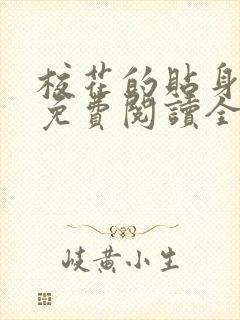 校花的貼身
免費閱讀全
岐黄小生